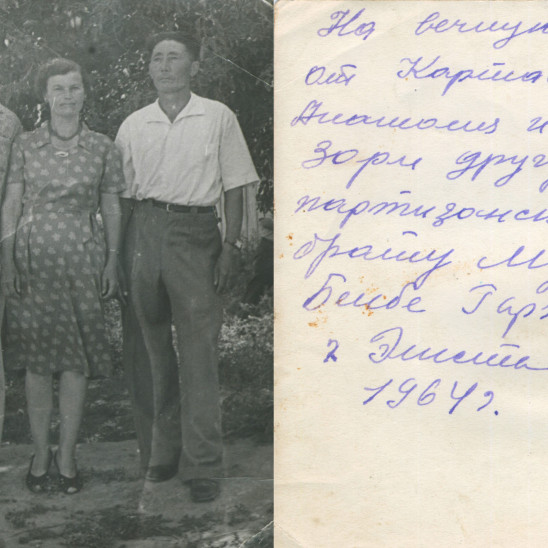 На вечную
от Карта
Анатолия и
Зори друг
партизанск
брату М
Бембе Гар
г Элиста
1964г.